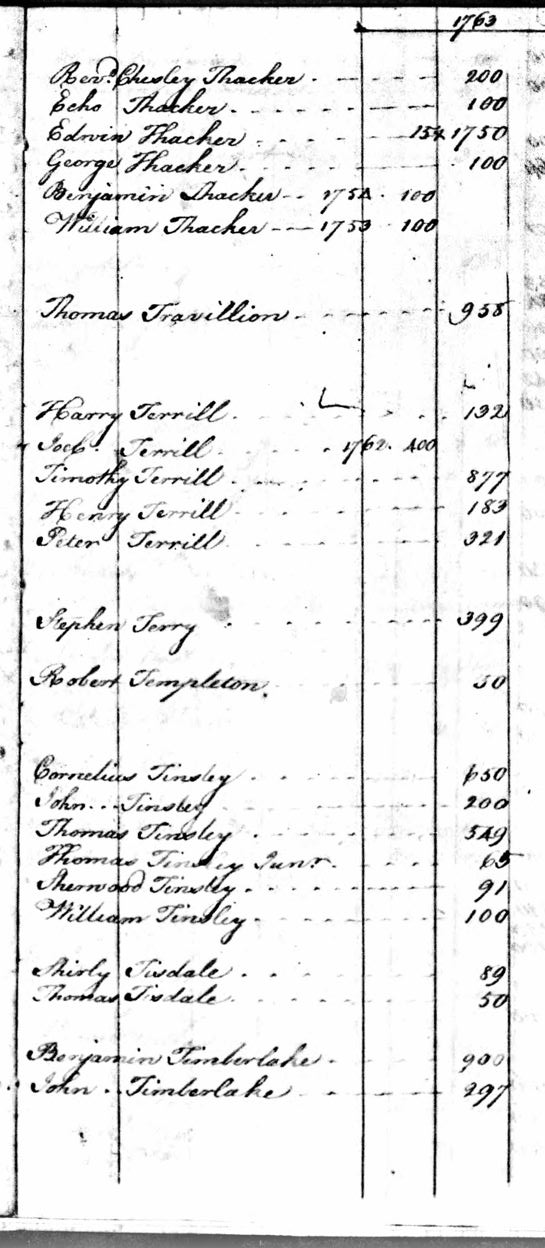 1763
Revd. Chesley Thacker. 200
Echo Thacker. 100
Edwin Thacker 154 1750
George Thacker. 100
Benjamin Thacker 1754. 100
William Thacker 1753 100
Thomas Travillion 958
Harry Terrill. 132
Terrill 1762. 400
Timothy Terrill 877
Henry Terrill 183
Peter Terrill 321
Stephen Terry 399
Robert Templeton. 50
Cornelius Tinsley 650
John Tinsley 200
Thomas Tinsley 549
Thomas Tinsley Junr. 65
Sherwood Tinsley 91
William Tinsley 100
Shirly Tisdale 89
Thomas Tisdale 50
Benjamin Timberlake 900
John Timberlake 297